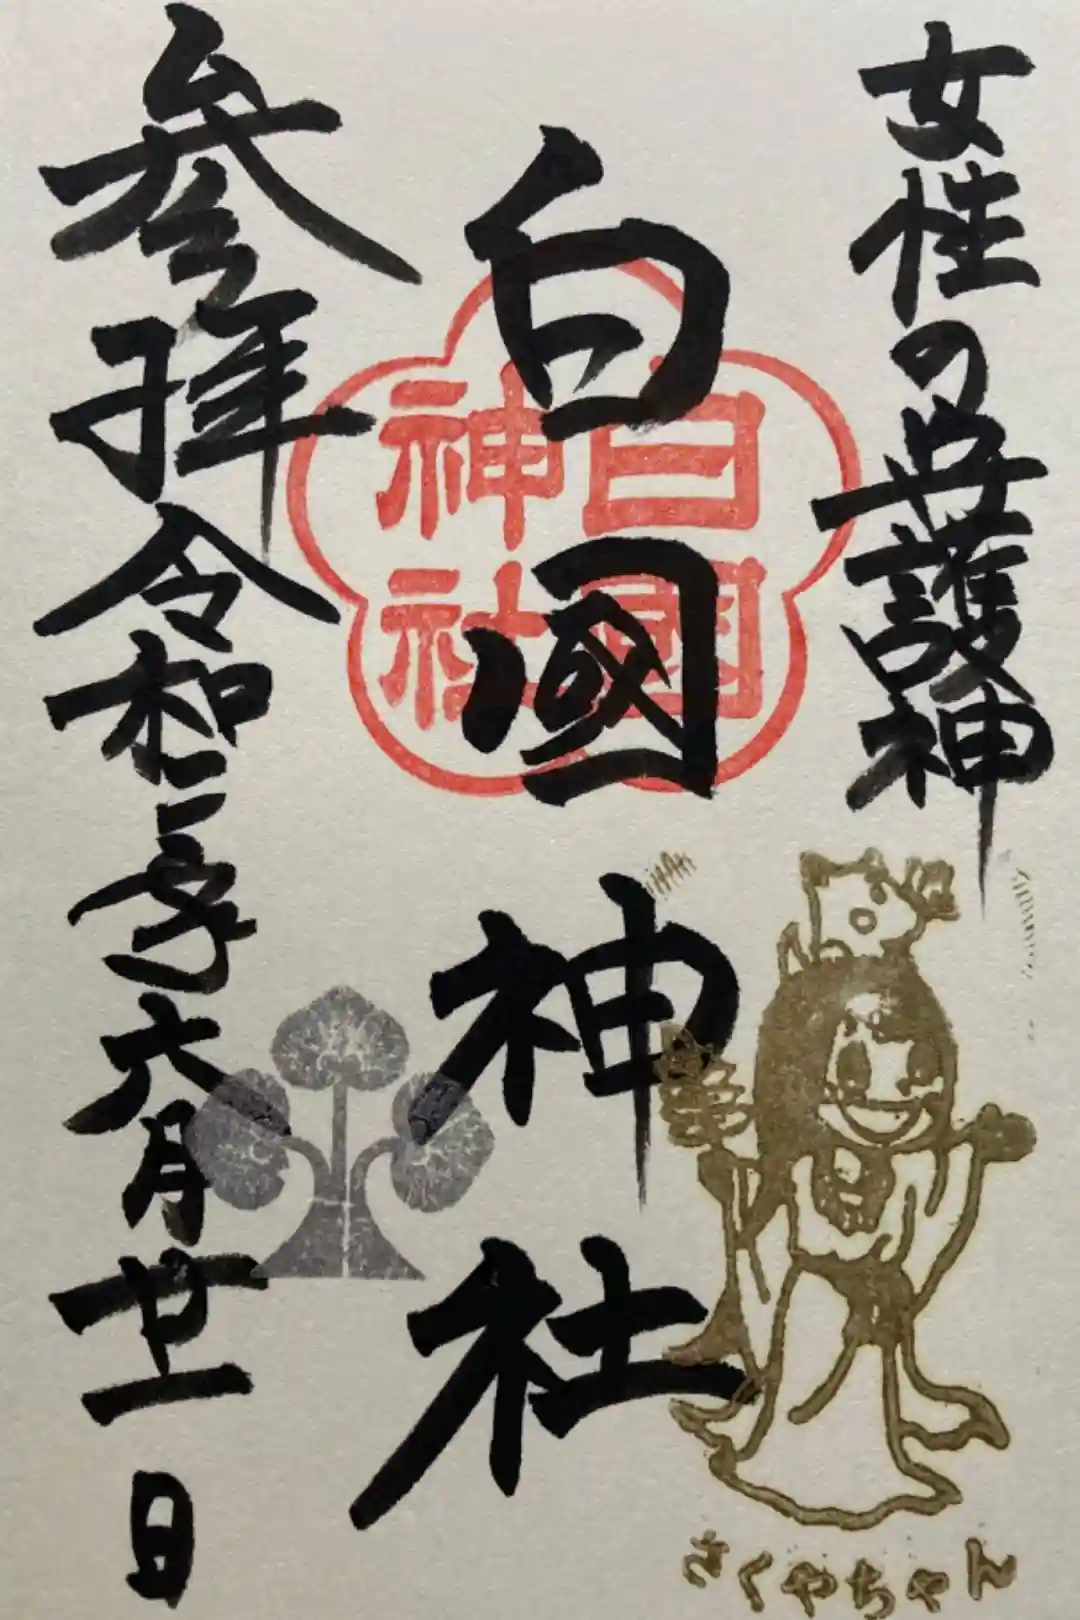 女性の守護神
白國神社
参拝令和三年六月廿一日
白國
神社
さくやちゃん